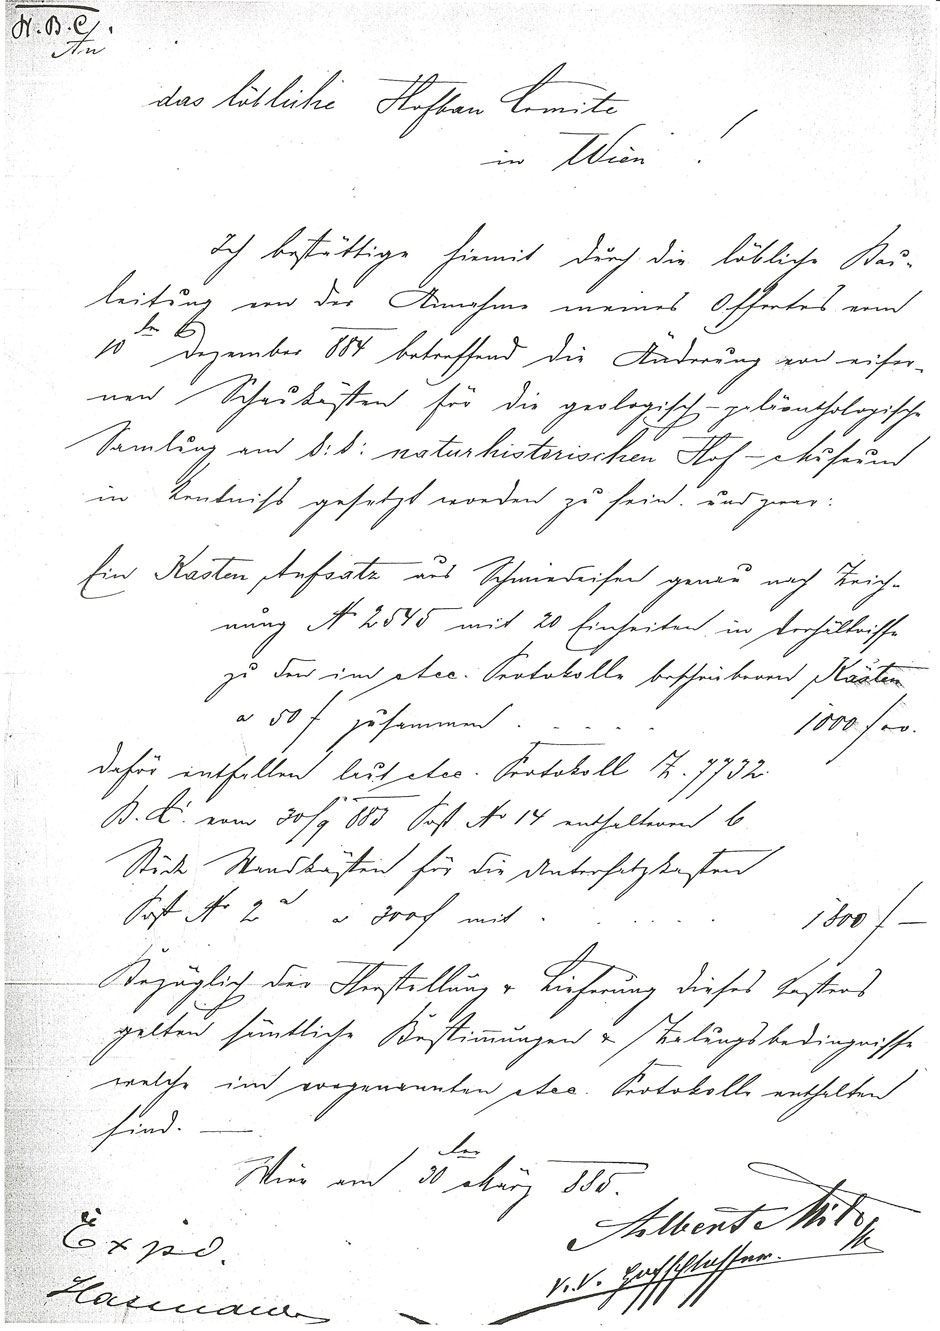 H.B.C.
An
das löbliche Hofbau Comite
in Wien !
Ich bestättige hiemit durch die löbliche Bau-
leitung von der Annahme meines Offertes vom
10ten Dezember 884 betreffend die Änderung von eiser-
nen Schaukästen für die geologisch-paläonthologische
Samlung am k: k: naturhistorischen Hof-Museum
in Kentniss gesetzt worden zu sein. und zwar:
Ein Kasten Aufsatz aus Schmiedeisen genau nach Zeich-
nung No 2545 mit 20 Einheiten in Verhältnisse
zu den im Acc. Protokolle beschriebenen Kästen
a 50 f zusammen . . . . . 1000 f oo.
dafür entfallen laut Acc. Protokoll Z. 7732
B.C. vom 30/9 883 Post No 14 enthaltenen 6
Stück Wandkästen für die Untersatzkasten
Post No 2a a 300 f mit . . . . . 1800 f —
Bezüglich der Herstellung & Lieferung dieses Kastens
gelten sämtliche Bestimungen & Zalungsbedingnisse
welche im vorgenannten Acc. Protokolle enthalten
sind. —
Wien am 30ten März 885.
Albert Milde
k.k. Hofschlosser.
Expd.